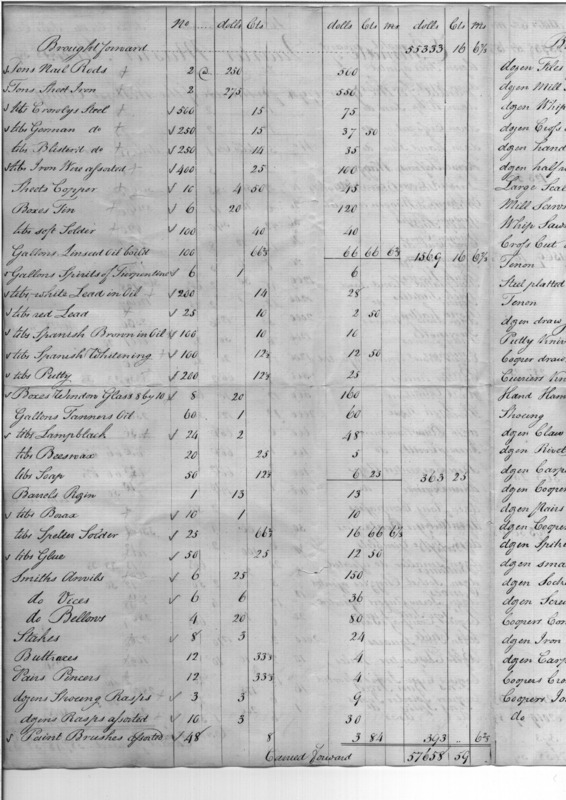 No dolls Cts dolls Cts Ms dolls Cts Ms
Brought forward 55333 16 6⅔
Tons Nail Rods 2 @ 250 500
Tons Sheet Iron 2 275 550
lbs Crowlys Steel 500 15 75
lbs German do 250 15 37 50
lbs Blisterd do 250 14 35
lbs Iron Wire assorted 400 25 100
Sheets Copper 10 4 50 45
Boxes Tin 6 20 120
lbs soft Solder 100 40 40
Gallons Linseed Oil boild 100 66⅔ 66 66 6⅔ 1569 16 6⅔
Gallons Spirits of Turpentine 6 1 6
lbs white Lead in Oil 200 14 28
lbs red Lead 25 10 2 50
lbs Spanish Brown in Oil 100 10 10
lbs Spanish Whitening 100 12½ 12 50
lbs Putty 200 12½ 25
Boxes Window Glass 8 by 10 8 20 160
Gallons Tanners Oil 60 1 60
lbs Lampblack 24 2 48
lbs Beeswax 20 25 5
lbs Soap 50 12½ 6 25 363 25
Barrels Rosin 1 13 13
lbs Borax 10 1 10
lbs Spelter Solder 25 66⅔ 16 66 6⅔
lbs Glue 50 25 12 50
Smiths Anvils 6 25 150
do Vices 6 6 36
do Bellows 4 20 80
Stakes 8 3 24
Buttraces 12 33⅓ 4
Pairs Pincers 12 33⅓ 4
dozens Shoeing Rasps 3 3 9
dozens Rasps assorted 10 3 30
Paint Brushes assorted 48 8 3 84 393 .. 6⅔
Carried Forward 57658 59
dozen Files
dozen Mill
dozen Whip
dozen Cross
dozen hand
dozen half
Large Scal
Mill Saws
Whip Saw
Cross Cut
Tenon
Steel platted
Tenon
dozen draw
Putty Kniv
Cooper draw
Curriers Kn
Hand Ham
Shoeing
dozen Claw
dozen Rivet
dozen Carp
dozen Cooper
dozen Pairs
dozen Cooper
dozen Spike
dozen sma
dozen Sock
dozen Scre
Coopers Com
dozen Iron
dozen Carp
Coopers Cro
Coopers Jo
do